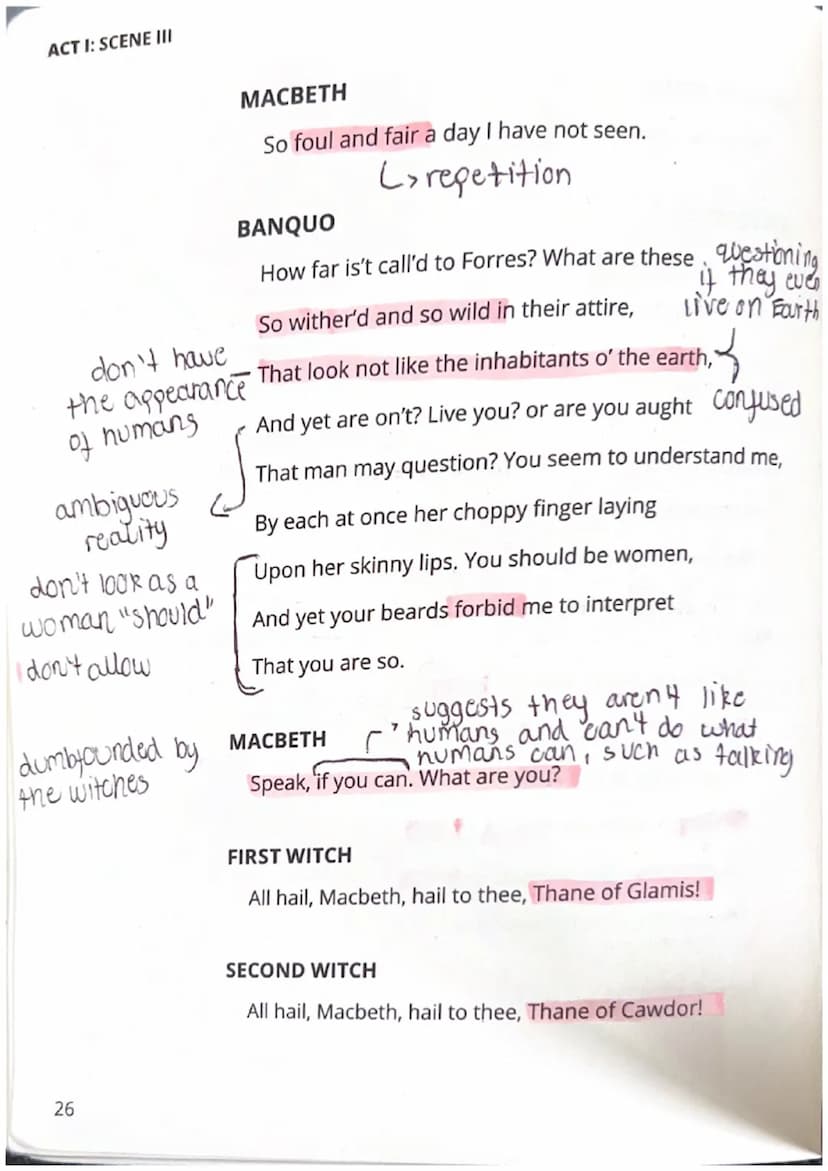 ACT I: SCENE III
MACBETH
So foul and fair a day I have not seen.
↳ repetition
BANQUO
How far is't call'd to Forres? What are these
questioning
if they even
live on Earth
So wither'd and so wild in their attire,
don't have
the appearance
of humans
That look not like the inhabitants o' the earth,
confused
And yet are on't? Live you? or are you aught
That man may question? You seem to understand me,
ambiguous
reality
By each at once her choppy finger laying
don't look as a
woman "should"
Upon her skinny lips. You should be women,
And yet your beards forbid me to interpret
don't allow
That you are so.
suggests they aren't like
humans and can't do what
humans can, such as talking
MACBETH
dumbfounded by
the witches
Speak, if you can. What are you?
FIRST WITCH
All hail, Macbeth, hail to thee, Thane of Glamis!
SECOND WITCH
All hail, Macbeth, hail to thee, Thane of Cawdor!
26